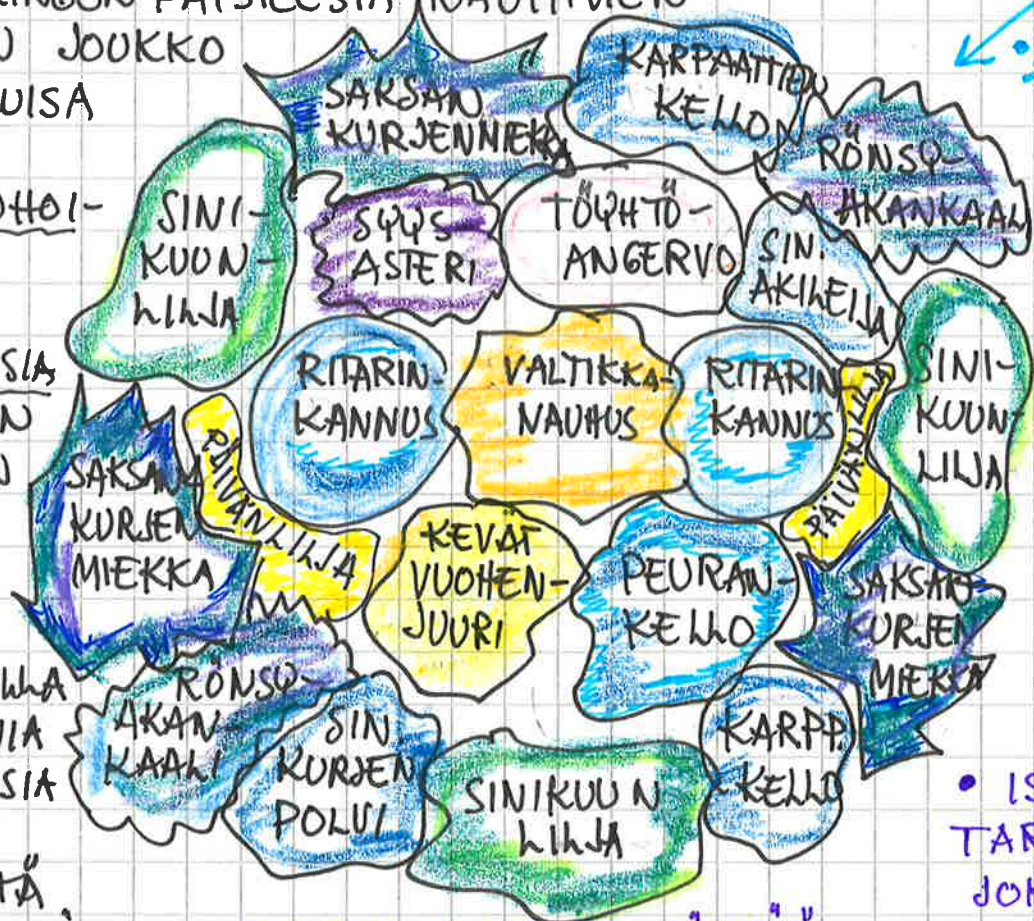 PAISTEESTA NAUTTIVIEN
JOUKKO
SAKSAN
KURJENMIEKKA
KARPAATTIEN
KELLO
RÖNSY-
AKANKAALI
SINI-
KUUN-
LILJA
SYYS
ASTERI
TÖYHTÖ-
ANGERVO
SIN.
AKILEIJA
RITARIN-
KANNUS
VALTIKKA-
NAUHUS
RITARIN
KANNUS
PÄIVÄNLILJA
SINI-
KUUN-
LILJA
SAKSAN
KURJEN
MIEKKA
PÄIVÄNLILJA
KEVÄT
VUOHEN-
JUURI
PEURAN-
KELLO
SAKSAN
KURJEN
MIEKKA
RÖNSY-
AKAN
KAALI
SIN
KURJEN
POLVI
SINIKUUN
LILJA
KARPP.
KELLO
• IS
TAR
JOH